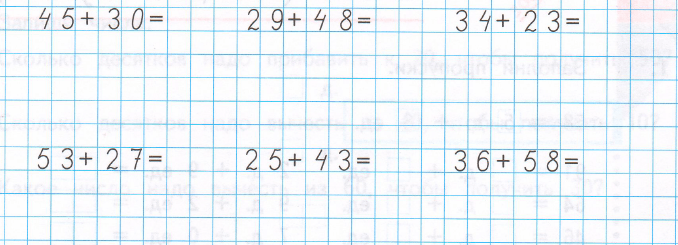 45+30= 29+48= 34+23=
53+27= 25+43= 36+58=